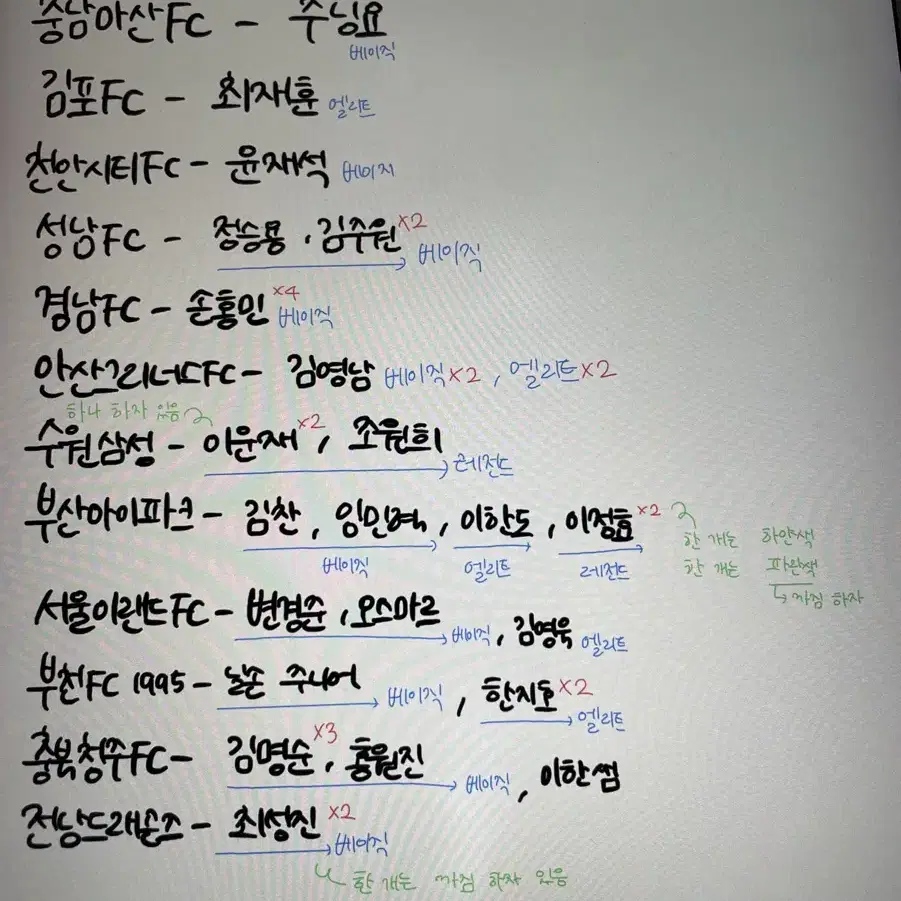 충남아산FC - 주닝요
베이직
김포FC - 최재훈 엘리트
천안시티FC - 윤재석 베이지
성남FC - 정승용 , 김주원 x2 베이직
경남FC - 손홍민 x4 베이직
안산그리너스FC - 김영남 베이직x2 , 엘리트x2
하나 하자 있음
수원삼성 - 이운재 x2 , 조원희 레전드
부산아이파크 - 김찬 , 임민혁 , 이한도 , 이정효 x2
베이직 엘리트 레전드
한 개는 하얀색
한 개는 파란색
↳ 까짐 하자
서울이랜드FC - 변경준 , 오스마르 베이직 , 김영욱 엘리트
부천FC 1995 - 닐손 주니어 베이직 , 한지호 x2 엘리트
충북청주FC - 김명순 x3 , 홍원진 베이직 , 이한샘
전남드래곤즈 - 최성진 x2 베이직
한 개는 까짐 하자 있음